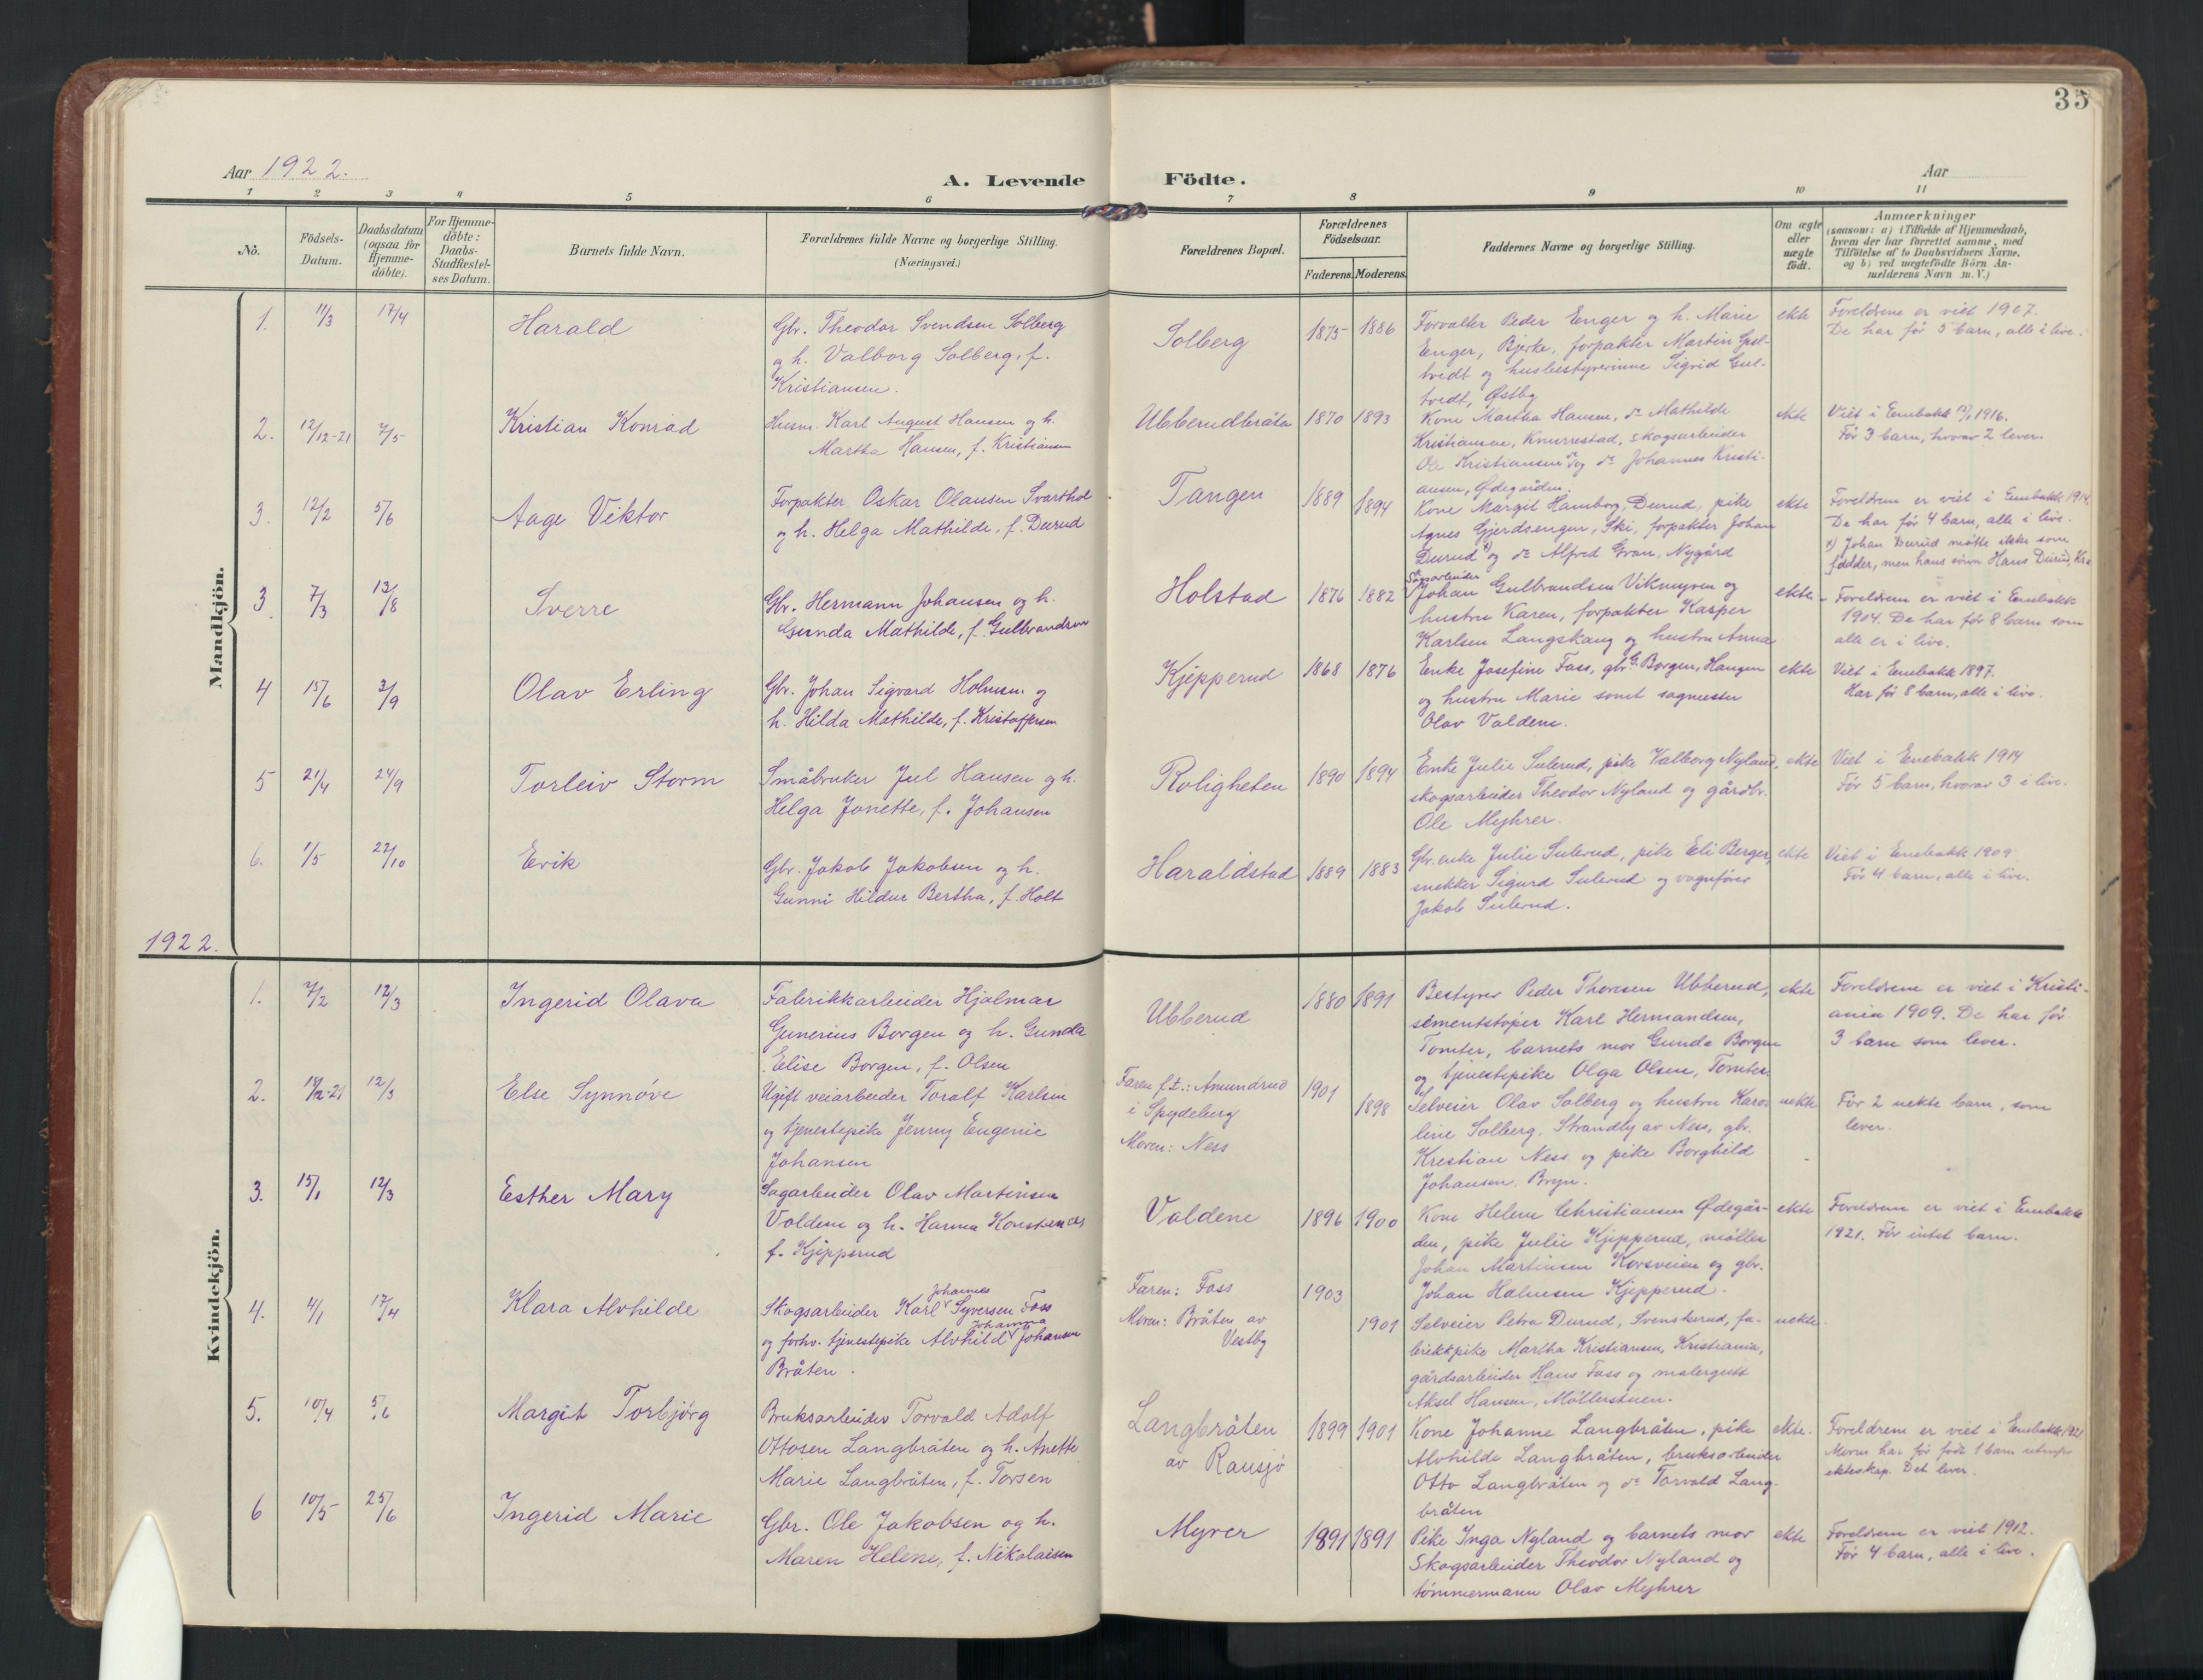 35
Aar 1922.
A. Levende Födte.
Aar
1 2 3 4 5 6 7 8 9 10 11
No.
Födsels-Datum.
Daabsdatum (ogsaa for Hjemme-döbte).
For Hjemme-döbte: Daabs-Stadfæstel-ses Datum.
Barnets fulde Navn.
Forældrenes fulde Navne og borgerlige Stilling.
(Næringsvei.)
Forældrenes Bopæl.
Forældrenes Födselsaar.
Faderens. Moderens.
Faddernes Navne og borgerlige Stilling.
Om ægte eller uægte födt.
Anmærkninger
(saasom: a) i Tilfælde af Hjemmedaab,
hvem der har forrettet samme, med
Tilföielse af to Daabsvidners Navne,
og b) ved uægtefödte Börn An-
melderens Navn m. V.)
Mandkjön.
1. 11/3 17/4 Harald
Gbr. Theodor Svendsen Solberg
og h. Valborg Solberg, f.
Kristiansen.
Solberg 1875 1886
Forvalter Peder Enger og h. Marie
Enger, Bjerke, forpakter Martin Gul-
tvedt og husbestyrerinne Sigrid Gul-
tvedt, Østby
ekte
Foreldrene er viet 1907.
De har før 5 barn, alle i live.
2. 12/12-21 7/5 Kristian Konrad
Husm. Karl August Hansen og h.
Martha Hansen, f. Kristiansen
Ubberudbråta 1870 1893
Kone Martha Hansen, do Mathilde
Kristiansen, Knurrestad, skogsarbeider
Ole Kristiansen og do Johannes Kristi-
ansen, Ødegården.
ekte
Viet i Enebakk 1916.
Før 3 barn, hvorav 2 lever.
3. 12/2 5/6 Aage Viktor
Forpakter Oskar Olausen Svarthol
og h. Helga Mathilde, f. Durud
Tangen 1889 1894
Kone Margit Hamborg, Durud, pike
Agnes Gjerdsengen, Ski, forpakter Johan
Durud x) og do Alfred Gran, Nygård
ekte
Foreldrene er viet i Enebakk 1914.
De har før 4 barn, alle i live.
x) Johan Durud møtte ikke som
fadder, men hans sønn Hans Durud, Kra
3. 7/3 13/8 Sverre
Gbr. Hermann Johansen og h.
Gunda Mathilde, f. Gulbrandsen
Holstad 1876 1882
Sagarbeider
Johan Gulbrandsen Vikmyren og
hustru Karen, forpakter Kasper
Karlsen Langskaug og hustru Anna
ekte
Foreldrene er viet i Enebakk
1904. De har før 8 barn som
alle er i live.
4 15/6 3/9 Olav Erling
Gbr. Johan Sigvard Holmsen og
h. Hilda Mathilde, f. Kristoffersen
Kjepperud 1868 1876
Enke Josefine Foss, gbr. G. Borgen, Haugen
og hustru Marie samt sagmester
Olav Valdene.
ekte
Viet i Enebakk 1897.
Har før 8 barn, alle i live.
5 21/4 24/9 Torleiv Storm
Småbruker Jul Hansen og h.
Helga Jonette, f. Johansen
Roligheten 1890 1894
Enke Julie Sulerud, pike Valborg Nyland,
skogsarbeider Theodor Nyland og gårdbr.
Ole Myhrer.
ekte
Viet i Enebakk 1914
Før 5 barn, hvorav 3 i live.
6. 1/5 22/10 Erik
Gbr. Jakob Jakobsen og h.
Gunni Hildur Bertha, f. Holt
Haraldstad 1889 1883
Gbr. enke Julie Sulerud, pike Eli Berger,
snekker Sigurd Sulerud og vognfører
Jakob Sulerud.
ekte
Viet i Enebakk 1909
Før 4 barn, alle i live.
1922.
Kvindekjön.
1. 7/2 12/3 Ingerid Olava
Fabrikkarbeider Hjalmar
Gunerius Borgen og h. Gunda
Elise Borgen, f. Olsen
Ubberud 1880 1891
Bestyrer Peder Thoresen Ubberud,
sementstøper Karl Hermandsen,
Tomter, barnets mor Gunda Borgen
og tjenestepike Olga Olsen, Tomter.
ekte
Foreldrene er viet i Kristi-
ania 1909. De har før
3 barn som lever.
2. 12-21 12/3 Else Synnöve
Ugift veiarbeider Toralf Karlsen
og tjenestepike Jenny Eugenie
Johansen
Faren f.t.: Amundrud
i Spydeberg
Moren: Ness
1901 1898
Selveier Olav Solberg og hustru Karo-
line Solberg, Strandly av Ness, gbr.
Kristian Ness og pike Borghild
Johansen, Bryn.
uekte
Før 2 uekte barn, som
lever.
3. 15/1 12/3 Esther Mary
Sagarbeider Olav Martinsen
Voldene og h. Hanna Konstance
f. Kjepperud
Valdene 1896 1900
Kone Helene Christiansen Ødegår-
den, pike Julie Kjepperud, møller
Johan Martinsen Korsveien og gbr.
Johan Holmsen Kjepperud.
ekte
Foreldrene er viet i Enebakk
1921. Før intet barn.
4. 4/1 17/4 Klara Alvhilde
Johannes
Skogsarbeider Karl Syversen Foss
Johanna
og forhv. tjenestepike Alvhild Johansen
Bråten.
Faren: Foss
Moren: Bråten av
Vestby
1903 1901
Selveier Petra Durud, Svenskerud, fa-
brikkpike Martha Kristiansen, Kristiania,
gårdsarbeider Hans Foss og malergutt
Aksel Hansen, Möllerstuen.
uekte.
5. 10/4 5/6 Margit Torbjörg
Bruksarbeider Torvald Adolf
Ottosen Langbråten og h. Anette
Marie Langbråten, f. Torsen
Langbråten
av Rausjø
1899 1901
Kone Johanne Langbråten, pike
Alvhilde Langbråten, bruksarbeider
Otto Langbråten og do Torvald Lang-
bråten
ekte.
Foreldrene er viet i Enebakk 1921
Moren har før født 1 barn utenfor
ekteskap. Det lever.
6 10/5 25/6 Ingerid Marie
Gbr. Ole Jakobsen og h.
Maren Helene, f. Nikolaisen
Myrer 1891 1891
Pike Inga Nyland og barnets mor
Skogsarbeider Theodor Nyland og
tömmermann Olav Myhrer
ekte
Foreldrene er viet 1912.
Før 4 barn, alle i live.